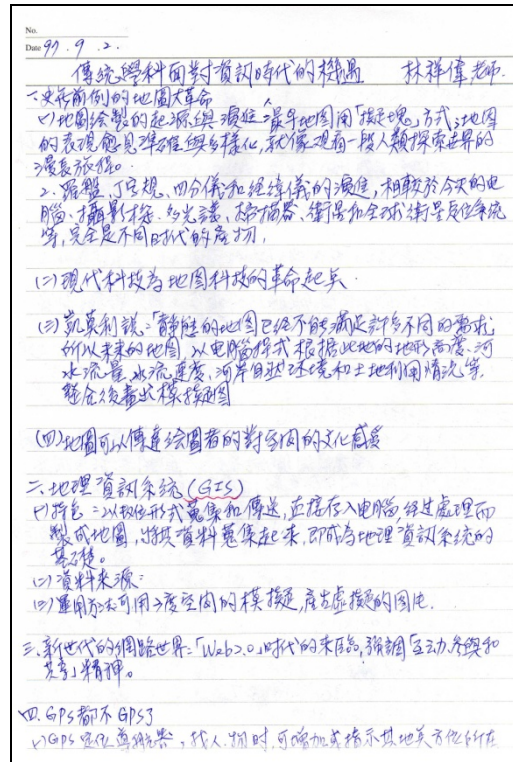 No.
Date 97.9.2.
傳統學科面對資訊時代的機遇 林祥偉老師
一、史無前例的地圖大革命
(一)地圖繪製的起源與演進：最早地圖用「揑塊」方式；地圖
的表現愈見準確與多樣化，就像观看一段人類探索世界的
漫長旅程。
2. 羅盤、丁字規、四分儀和經緯儀的演進，相較於今天的电
腦、攝影機、多光譜、掃描器、衛星和全球衛星定位系統
等，完全是不同时代的產物，
(二)現代科技為地图科技的革命起兵.
(三)凱莫利說：「靜態的地图已經不能滿足許多不同的需求
所以未來的地图，以电腦程式根據此地的地形高度、河
水流量、水流速度、河岸自然环境和土地利用情況等，
整合後畫出模擬图
(四)地圖可以傳達繪圖者的對空間的文化感受
二、地理資訊系統(GIS)
(一)特色：以数位形式蒐集和傳送，直接存入电腦，經过處理而
製成地圖，將其資料蒐集起來，即成為地理資訊系統的
基礎。
(二)資料來源：
(三)運用方法可用3度空间的模擬，產生虛擬的图
三、新世代的網路世界：「Web2.0」時代的來臨，強調「互动、参與和
共享」精神。
四、GPS都不GPS了
(一)GPS定位導航器，找人、物时，可增加或指示其地美方位所在